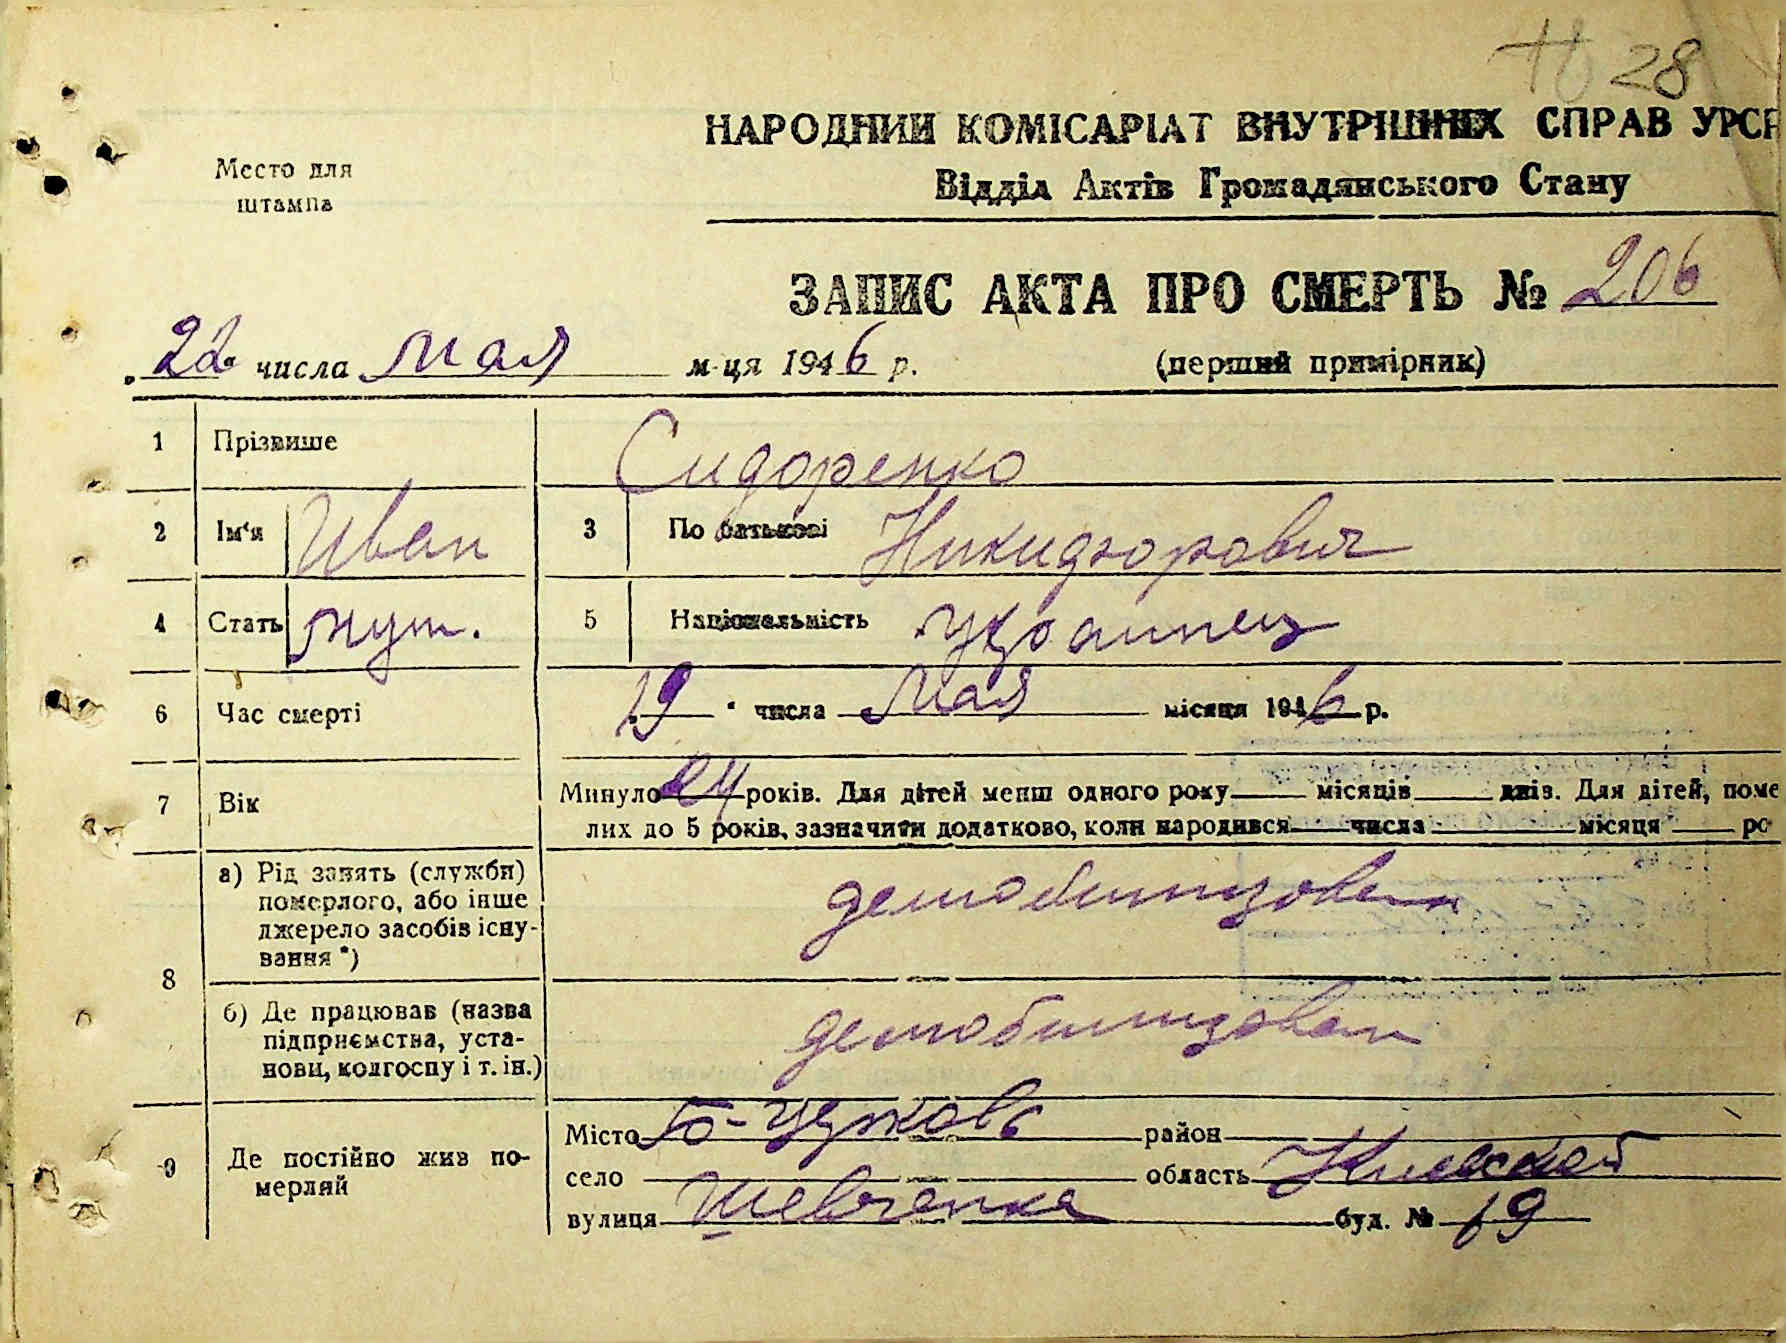 28
НАРОДНИЙ КОМІСАРІАТ ВНУТРІШНІХ СПРАВ УРСР
Відділ Актів Громадянського Стану
Место для
штампа
ЗАПИС АКТА ПРО СМЕРТЬ № 206
"22" числа мая м-ця 1946 р.
(перший примірник)
1 Прізвище Сидоренко
2 Ім'я Иван 3 По батькові Никидорович
4 Стать муж. 5 Національність украинец
6 Час смерті 19 " числа мая місяця 1946 р.
7 Вік Минуло 24 років. Для дітей менш одного року місяців днів. Для дітей, поме
лих до 5 років, зазначити додатково, коли народився числа місяця ро
8
а) Рід занять (служби)
померлого, або інше
джерело засобів існу-
вання *)
демобилизован
б) Де працював (назва
підприємства, уста-
нови, колгоспу і т. ін.)
демобилизован
9 Де постійно жив по-
мерлий
Місто Б-Церковь район
село область Киевской
вулиця Шевченка буд. № 19